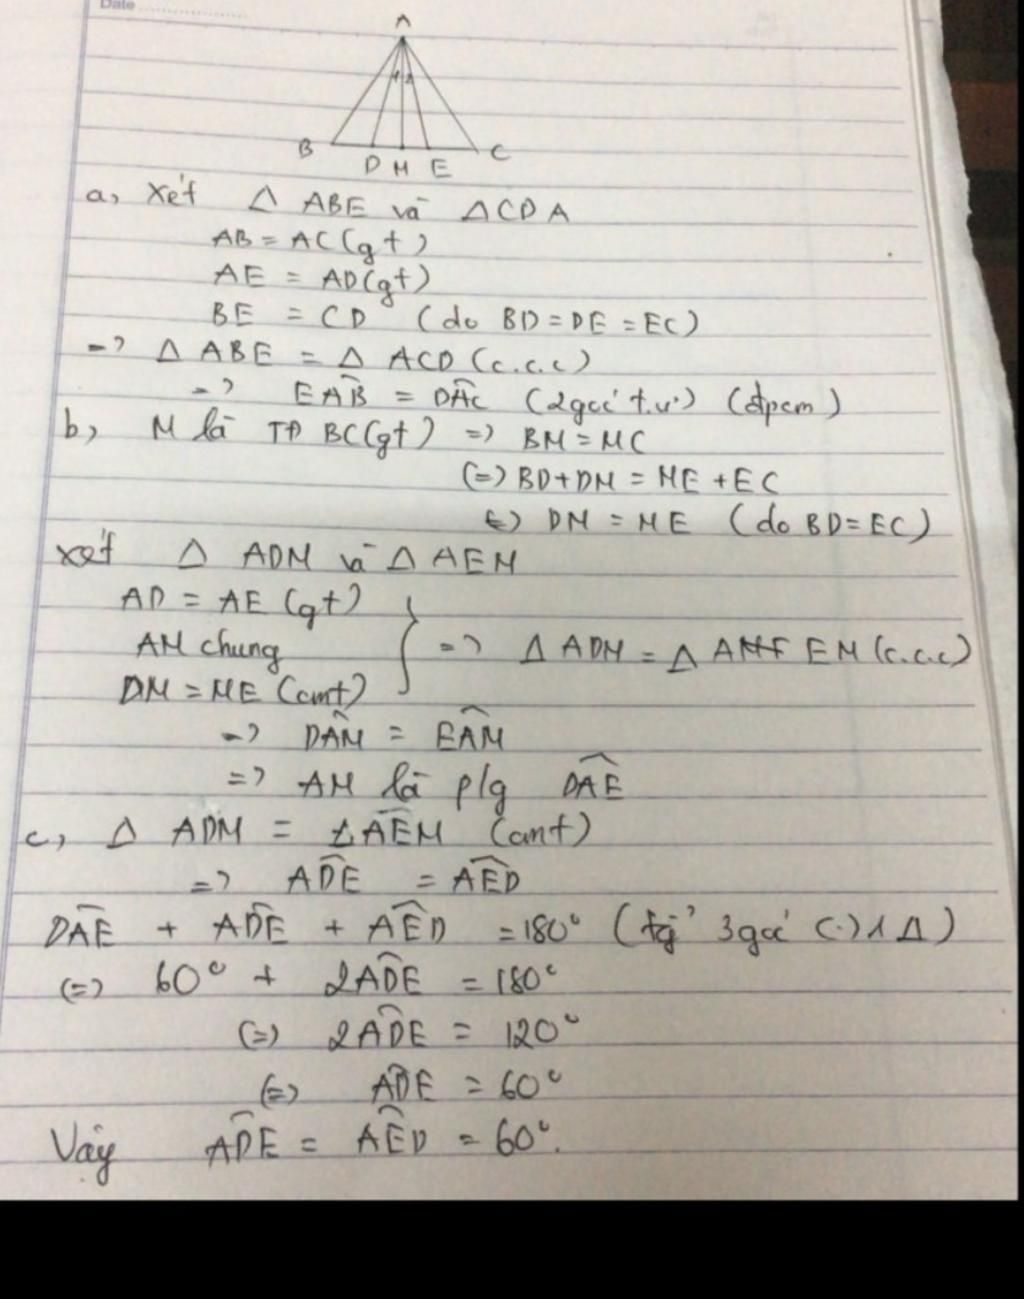 Date
A
1 2
B D M E C
a, Xét Δ ABE và ΔCDA
AB = AC (gt)
AE = AD (gt)
BE = CD (do BD = DE = EC)
=> Δ ABE = Δ ACD (c.c.c)
=> EAB̂ = DÂC (2 góc t.ư) (đpcm)
b, M là TĐ BC (gt) => BM = MC
(=) BD + DM = ME + EC
(=) DM = ME (do BD = EC)
xét Δ ADM và Δ AEM
AD = AE (gt)
AM chung
DM = ME (cmt)
} => Δ ADM = Δ A EM (c.c.c)
=> DÂM = EÂM
=> AM là p/g DÂE
c, Δ ADM = ΔAEM (cmt)
=> AD̂E = AÊD
DÂE + AD̂E + AÊD = 180° (tg 3 góc (.) 1 Δ)
(=) 60° + 2AD̂E = 180°
(=) 2AD̂E = 120°
(=) AD̂E = 60°
Vậy AD̂E = AÊD = 60°.